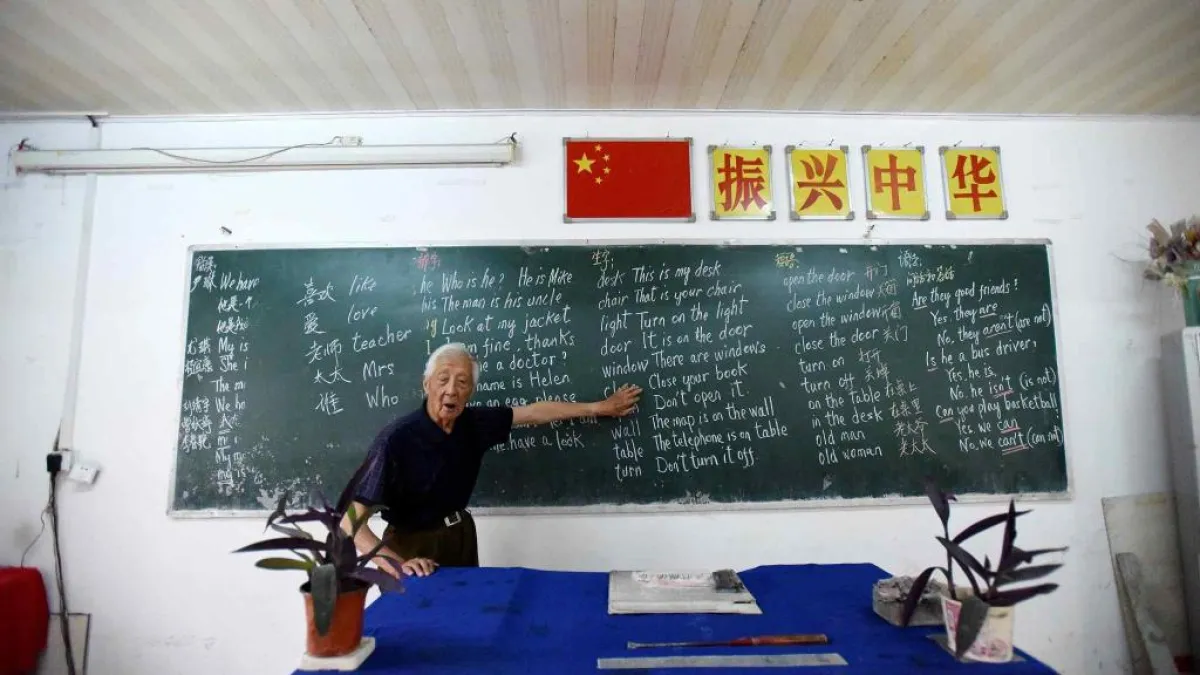 振兴中华
We have
My is
She i
The m
We h
喜欢 like
爱 love
老师 teacher
太太 Mrs
谁 Who
he Who is he? He is Mike
his The man is his uncle
Look at my jacket
fine, thanks
a doctor?
name is Helen
an egg please
have a look
生字
desk This is my desk
chair That is your chair
light Turn on the light
door It is on the door
window There are windows
Close your book
Don't open it.
wall The map is on the wall
table The telephone is on table
turn Don't turn it off
open the door 开门
close the window 关窗
open the window 开窗
close the door 关门
turn on 打开
turn off 关掉
on the table 在桌上
in the desk 在桌里
old man 老大爷
old woman 老太太
Are they good friends?
Yes. they are
No, they aren't (are not)
Is he a bus driver,
Yes, he is.
No. he isn't (is not)
Can you play basketball?
Yes. we can
No, we can't (can not)